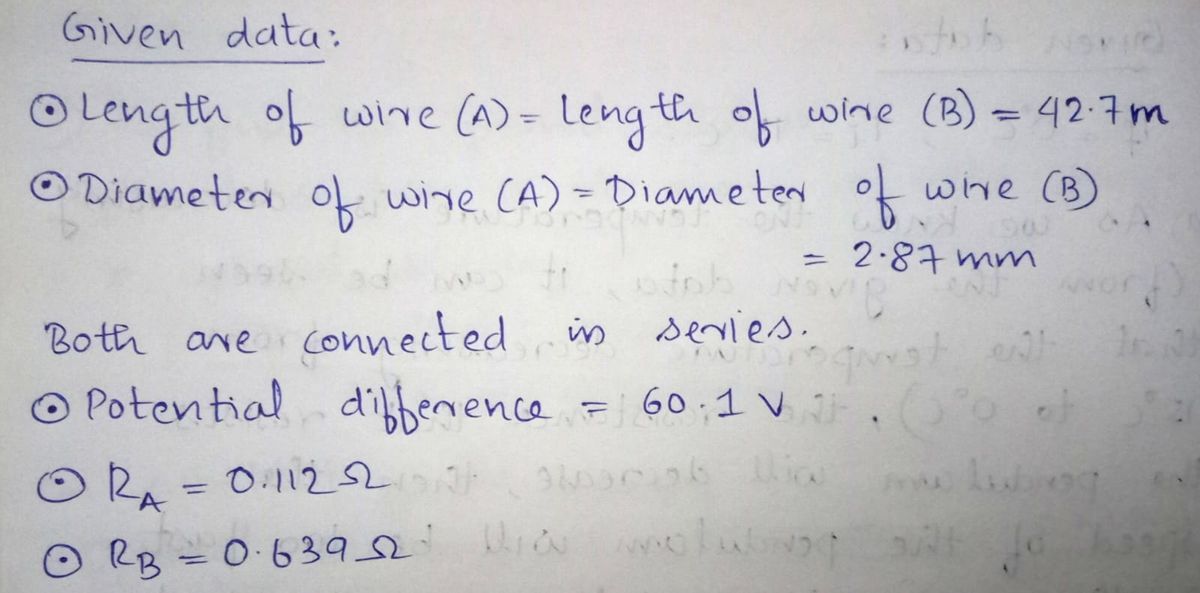 Given data:
⊙ Length of wire (A) = Length of wire (B) = 42.7m
⊙ Diameter of wire (A) = Diameter of wire (B)
= 2.87 mm
Both are connected in series.
⊙ Potential difference = 60.1 V
⊙ RA = 0.112 Ω
⊙ RB = 0.639 Ω